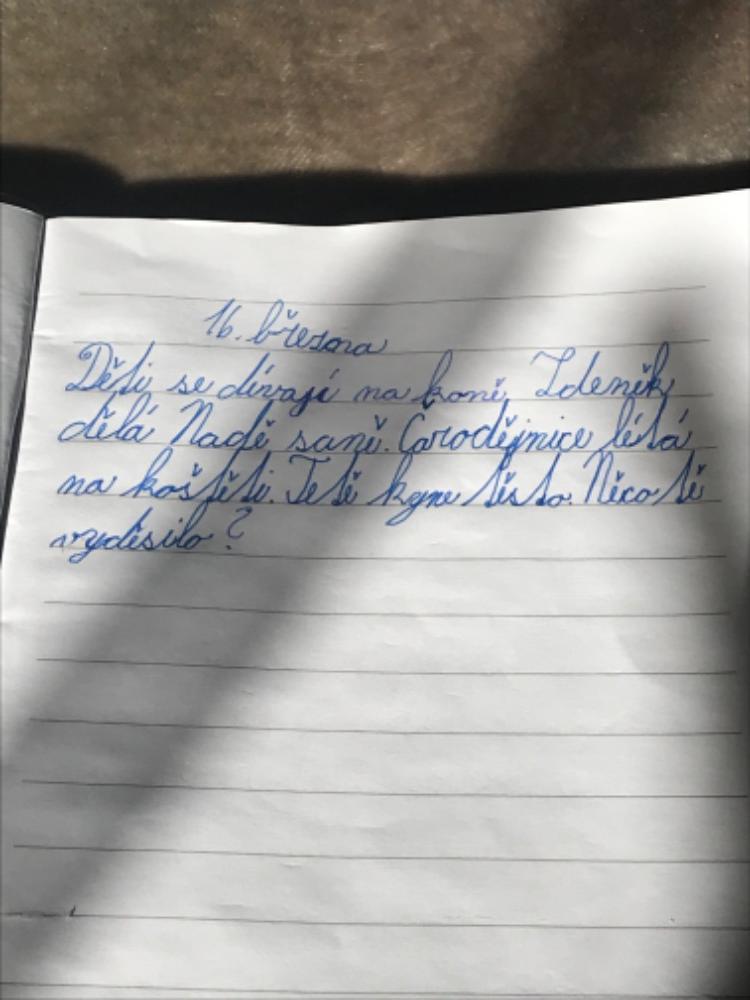 16. března
Děti se dívají na koně. Zdeněk
dělá Nadě saně. Čarodějnice létá
na koštěti. Tetě kyne těsto. Něco tě
vyděsilo?